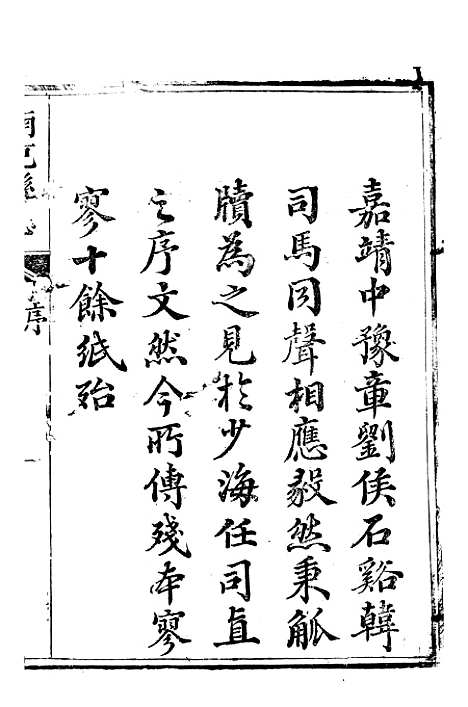 嘉靖中豫章劉侯石谿韓
司馬同聲相應毅然秉觚
牘為之見於少海任司直
之序文然今所傳殘本寥
寥十餘紙殆
序